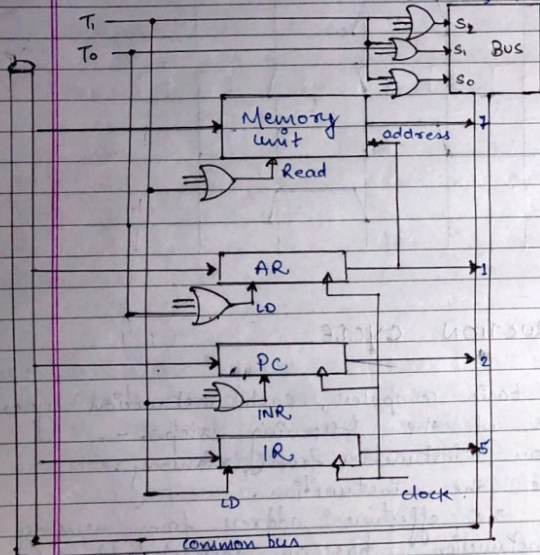 T1
T0
S2
S1
S0
BUS
Memory unit
7
address
Read
AR
1
LD
PC
2
INR
IR
5
LD
clock
common bus